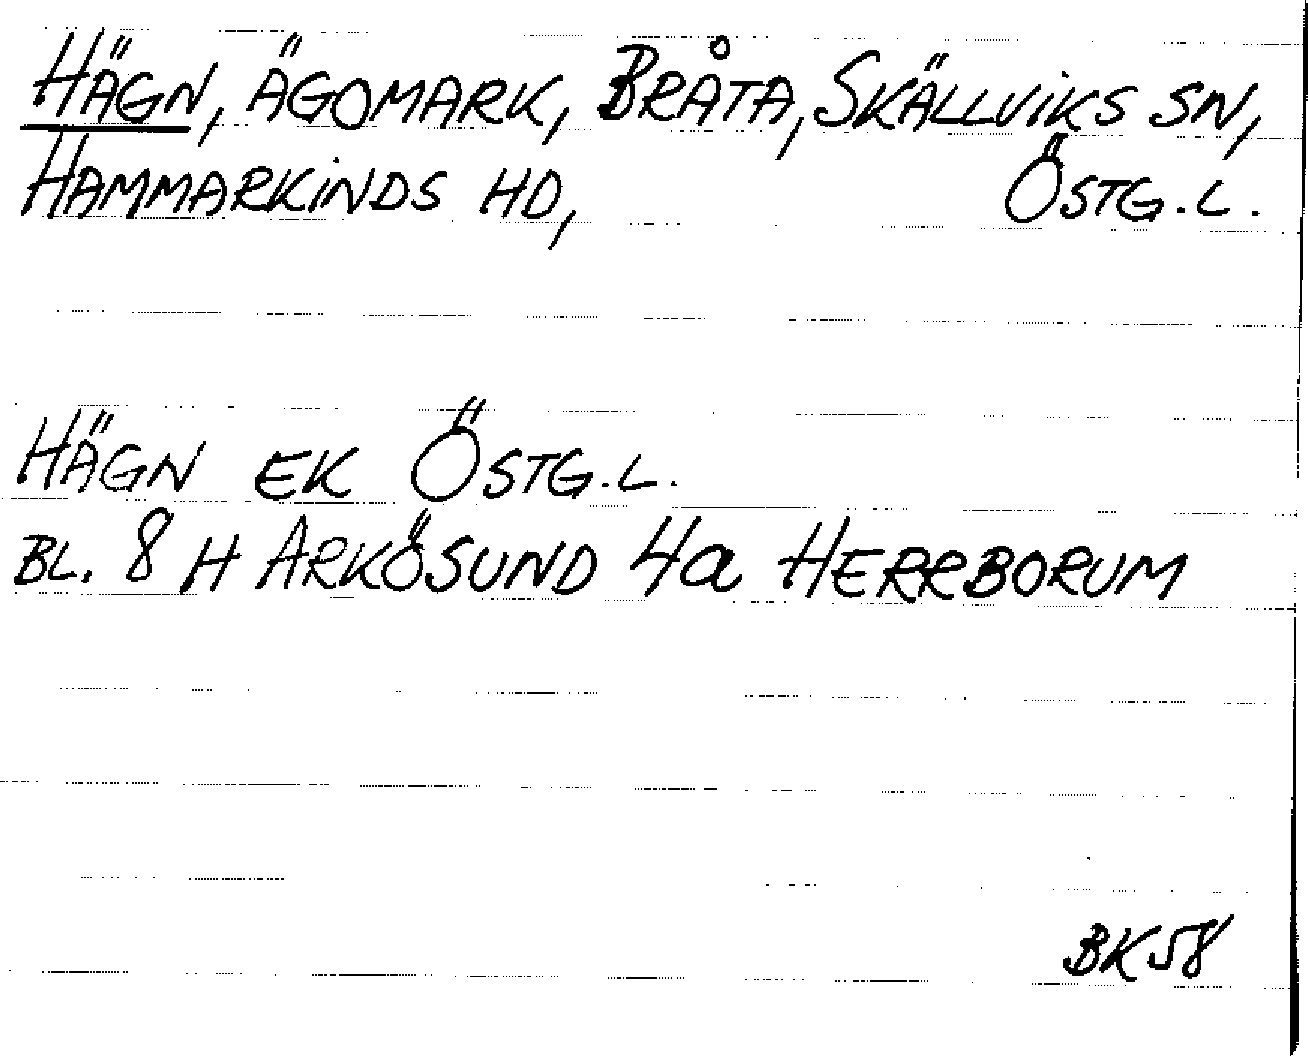 HÄGN, ÄGOMARK, BRÅTA, SKÄLLVIKS SN,
HAMMARKINDS HD, ÖSTG.L.
HÄGN EK ÖSTG.L.
BL. 8 H ARKÖSUND 4a HERRBORUM
BK58